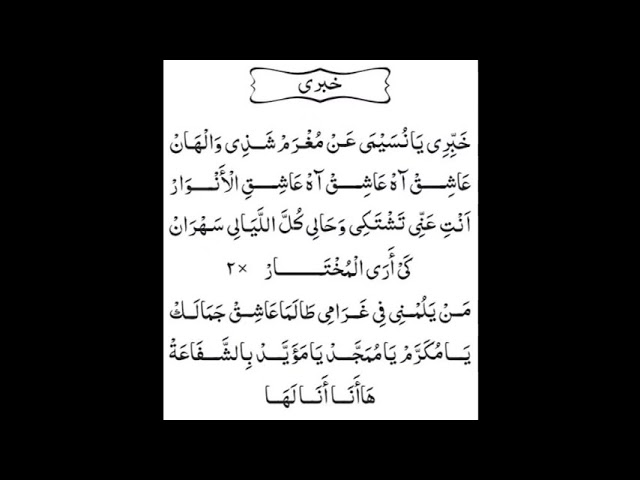 خبرى
خَبِّرِى يَا نُسَيْمَى عَنْ مُغْرَمْ شَذِى وَالْهَانْ
عَاشِقْ آهْ عَاشِقْ آهْ عَاشِقِ الْأَنْوَارْ
اَنْتِ عَنِّى تَشْتَكِى وَحَالِى كُلَّ اللَّيَالِى سَهْرَانْ
كَىْ أَرَى الْمُخْتَارْ ×٢
مَنْ يَلُمْنِى فِى غَرَامِى طَالَمَا عَاشِقْ جَمَالَكْ
يَا مُكَرَّمْ يَا مُمَجَّدْ يَا مَؤَيَّدْ بِالشَّفَاعَةْ
هَا أَنَا أَنَا لَهَا